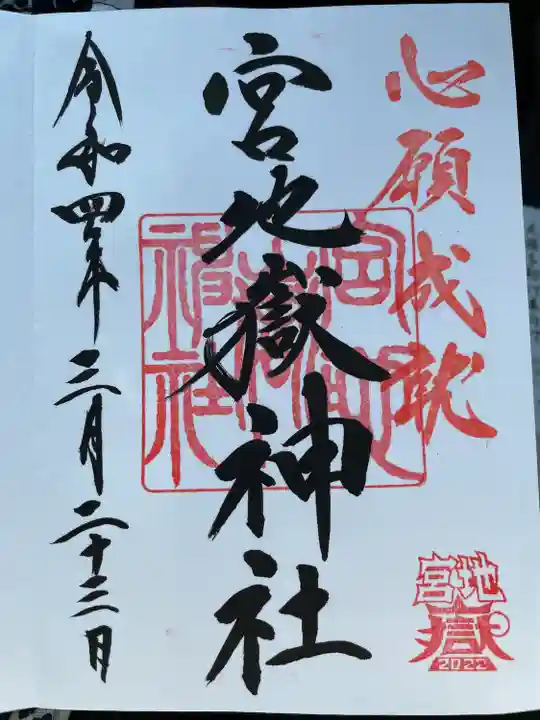 心願成就
宮地嶽神社
宮地嶽神社
宮地
嶽
2022
令和四年三月二十三日